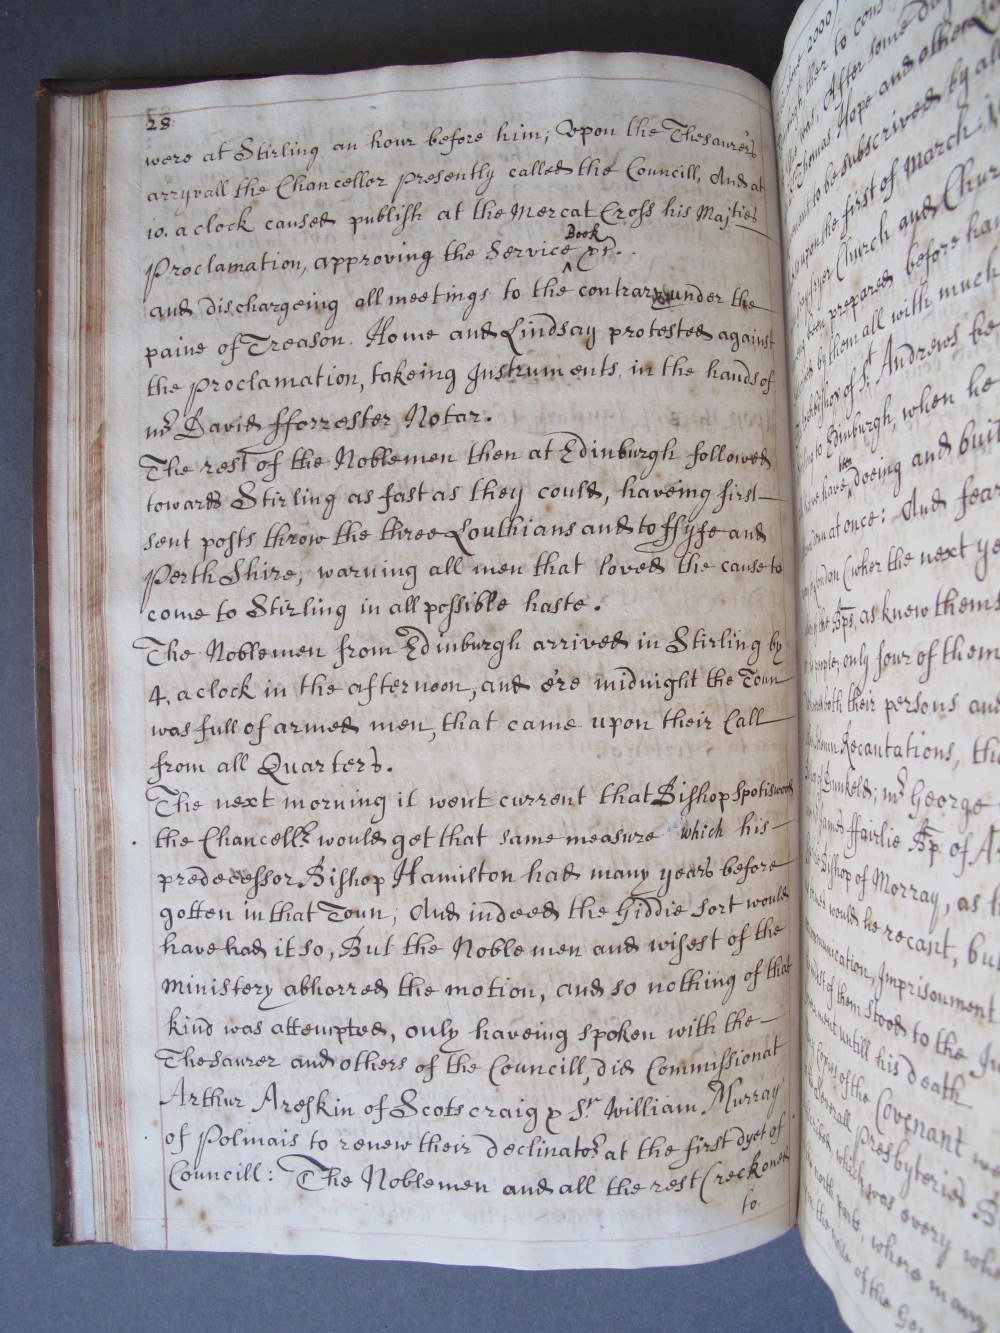 28
were at Stirling an hour before him; Vpon the Thesaurers
arryvall the Chancellor presently called the Councill, And at
10. a clock caused publish at the Mercat Cross his Majties
Book
Proclamation, approving the Service ^ &c. .
and dischargeing all meetings to the contrary under the
paine of Treason. Home and Lindsay protested against
the Proclamation, takeing Instruments in the hands of
mr David fforrester Notar.
The rest of the Noblemen then at Edinburgh followed
towards Stirling as fast as they could, haveing first
sent posts throw the three Louthians and to ffyfe and
Perth Shire, warning all men that loved the cause to
come to Stirling in all possible haste.
The Noblemen from Edinburgh arrived in Stirling by
4. a clock in the afternoon, and e're midnight the Toun
was full of armed men, that came upon their Call
from all Quarters.
The next morning it went current that Bishop Spotiswood
the Chancellr would get that same measure which his
predecessor Bishop Hamilton had many years before
gotten in that Toun; And indeed the Giddie sort would
have had it so, But the Noble men and wisest of the
ministery abhorred the motion, and so nothing of that
kind was attempted, only haveing spoken with the
Thesaurer and others of the Councill, did Commissionat
Arthur Areskin of Scotscraig & Sr William Murray
of Polmais to renew their declinator at the first dyet of
Councill: The Noblemen and all the rest (reckoned
to.
after some
Thomas Hope and other
to be subscrived by all
upon the first of March
Church and Chur
prepared before ha
by them all with much
of St Andrews be
to Edinburgh, when he
been
have doeing and buil
at once: And fear
London (wher the next ye
the Bps, as knew thems
only four of them
both their persons and
Recantations, th
of Dunkeld; mr George
James ffairlie Bp: of Ar
Bishop of Morray, as h
would he recant, but
Imprisonment
of them stood to the
untill his death
Copies of the Covenant we
Severall Presbyteries. S
which was every whe
where many